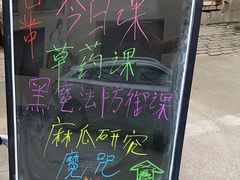 今日课
草药课
黑魔法防御课
麻瓜研究
魔咒